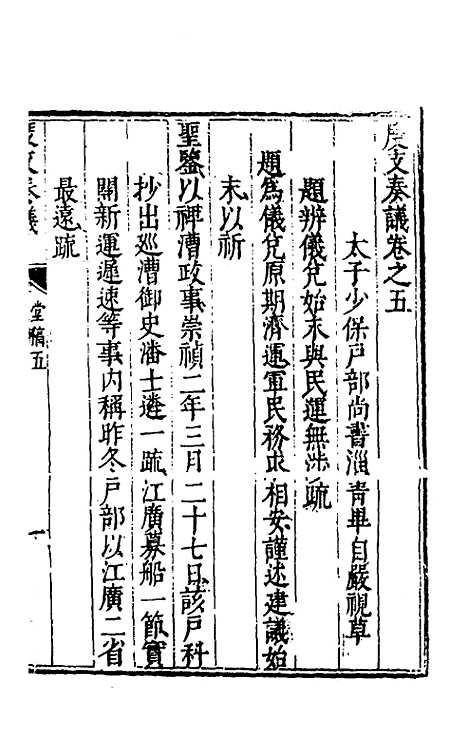 度支奏議卷之五
太子少保戶部尚書淄青畢自嚴視草
題辨儀兌始末與民運無涉疏
題為儀兌原期濟運軍民務求相安謹述建議始
末以祈
聖鑒以禆漕政事崇禎二年三月二十七日該戶科
抄出巡漕御史潘士遴一疏江廣募船一節實
關新運遲速等事內稱昨冬戶部以江廣二省
最遠疏
度支奏議
堂稿五
一